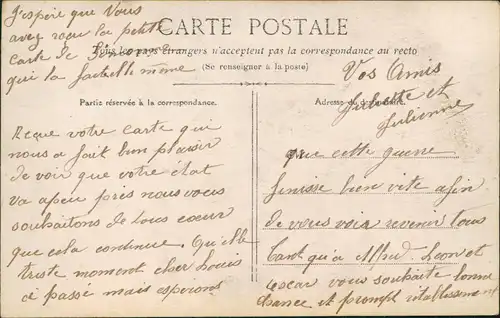 J'espère que Vous
avez reçu la petite
carte de Simonne
qui la faite elle même
CARTE POSTALE
Tous les pays étrangers n'acceptent pas la correspondance au recto
(Se renseigner à la poste)
Partie réservée à la correspondance.
Adresse du destinataire.
Vos Amis
Juliette et
Julienne
Reçue votre carte qui
nous a fait bien plaisir
de voir que votre état
va apeu près nous vous
souhaitons de tous cœur
que cela continue. Quelle
triste moment cher Louis
a passé mais esperons
que cette guerre
finisse bien vite afin
de vous voir revenir tous
tant qu'à Alfred Leon et
Oscar vous souhaite bonne
chance et prompt rétablissement